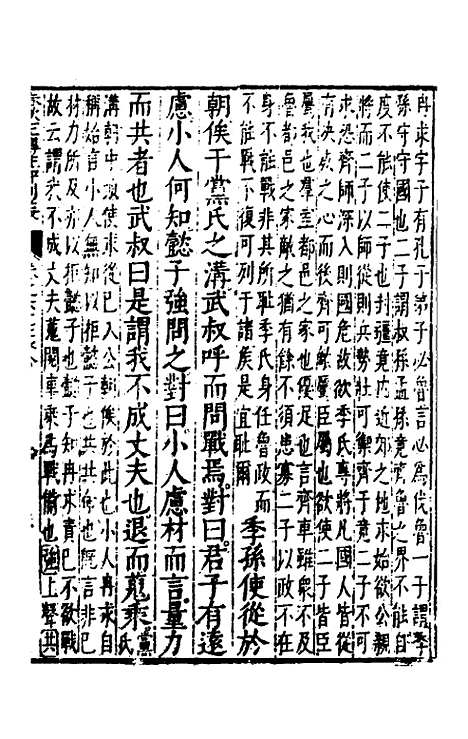 冉求字子有孔子弟子必魯言必為伐魯一子謂季
孫守守國也二子謂叔孫孟孫竟諸魯之界不能自
度不能使二子也封疆竟内近郊之地求始欲公親
將而二子以師從則兵勢壯可禦齊于竟二子不可
求恐齊師深入則國危故欲季氏專將凡國人皆從
言決戰之心而後齊可禦屬臣屬也欲二子皆臣
屬我也羣室都邑之家也優足也言齊車雖衆不及
魯都邑之家敵之猶有餘不須患寡二子以政不在
身不能戰非其所耻季氏身任魯政而
不能戰不復可列于諸矦是宜耻爾
季孫使從於
朝俟于黨氏之溝武叔呼而問戰焉對曰君子有遠
慮小人何知懿子強問之對曰小人慮材而言量力
而共者也武叔曰是謂我不成丈夫也退而蒐乘黨氏
溝朝中使求從已入公朝俟於此也小人冉求自
稱始言小人無知以拒懿子也共共命也輒言非已
材力所及亦以拒懿子也懿子知冉求責已不欲戰
故云謂我不成丈夫蒐閱車乘為戰備也強上聲共